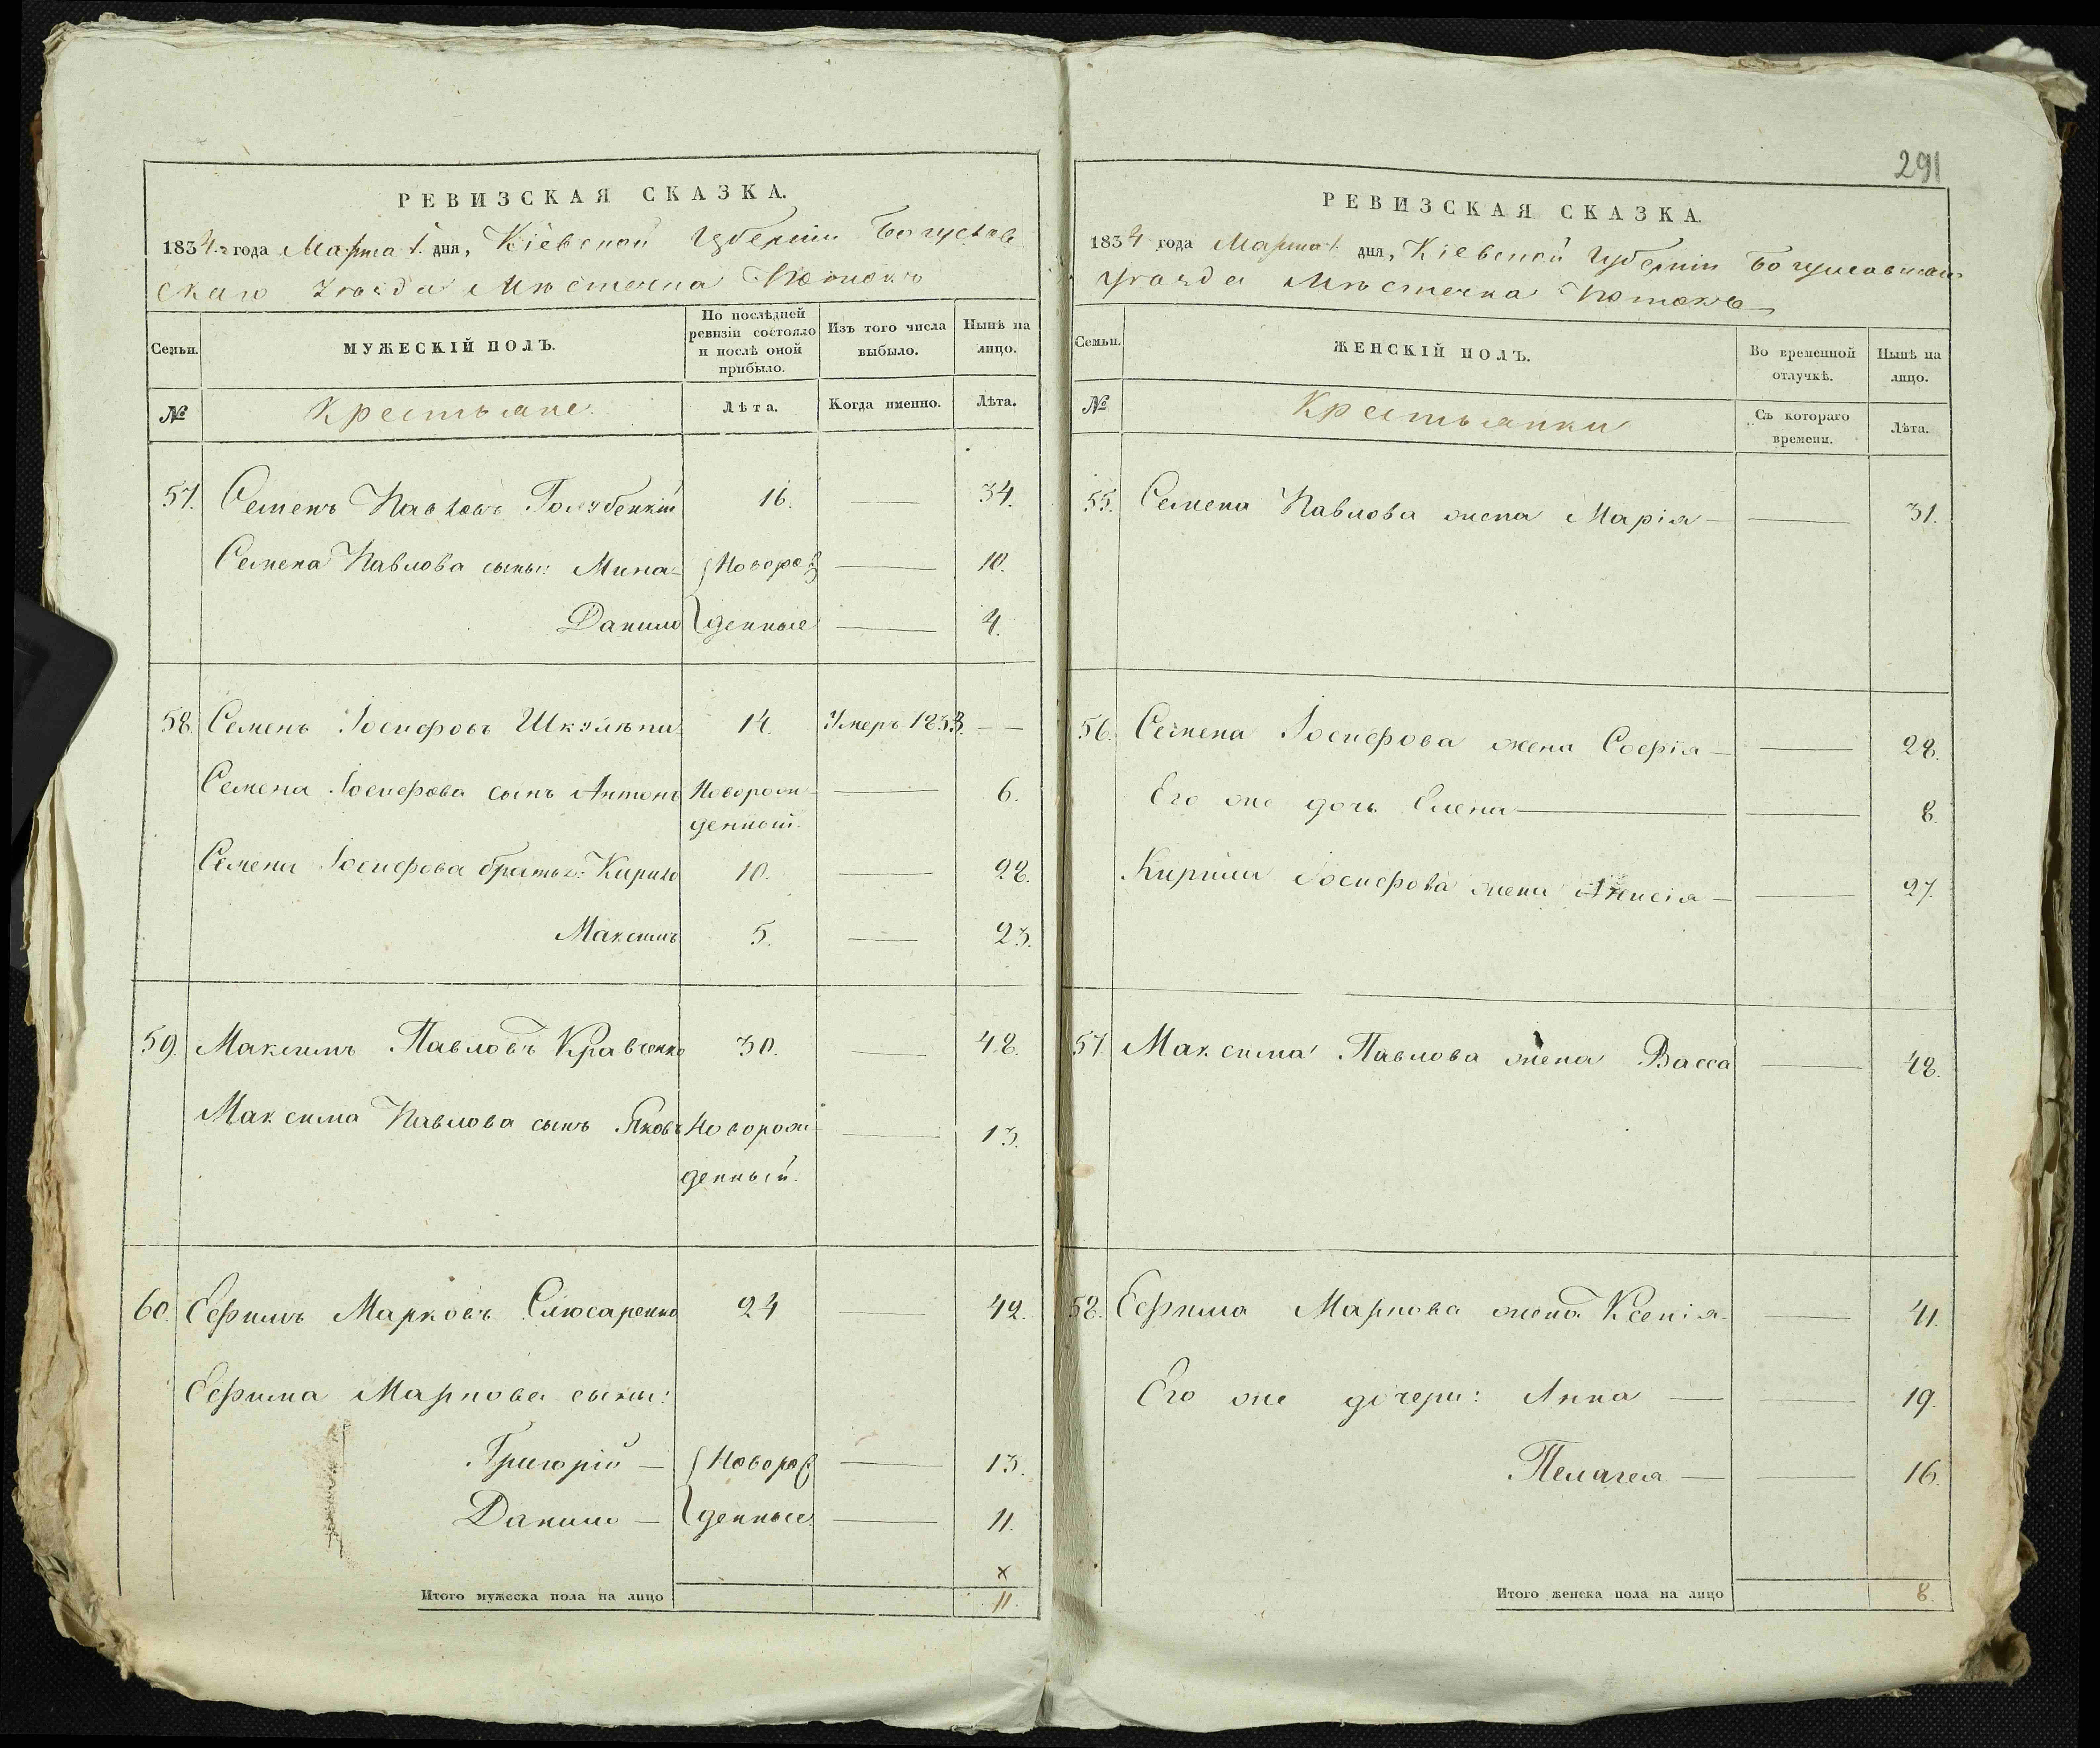 РЕВИЗСКАЯ СКАЗКА.
1834 года Марта 1. дня, Кіевской Губерніи Богуслав
скаго уѣзда Мѣстечка Потокъ
Семьи.
МУЖЕСКІЙ ПОЛЪ.
По послѣдней ревизіи состояло и послѣ оной прибыло.
Изъ того числа выбыло.
Нынѣ на лицо.
№
Крестьяне.
Лѣта.
Когда именно.
Лѣта.
57. Семенъ Павловъ 16. — 34.
Семена Павлова сыны: Мина — Новорож — 10.
Данило денные — 4.
58. Семенъ Іосифовъ 14. Умеръ 1833. — —
Семена Іосифова сынъ Антонъ Новорож — 6.
денный.
Семена Іосифова братья: Кирило 10. — 28.
Максимъ 5. — 23.
59. Максимъ Павловъ Кравченко 30. — 48.
Максима Павлова сынъ Яковъ Новорож — 13.
денный.
60. Ефимъ Марковъ Слюсаренко 24 — 42.
Ефима Маркова сыны:
Григорій — Новорож — 13.
Данило — денные — 11.
х
Итого мужеска пола на лицо 11.
291
РЕВИЗСКАЯ СКАЗКА.
1834 года Марта 1. дня, Кіевской Губерніи Богуславскаго
уѣзда Мѣстечка Потокъ
Семьи.
ЖЕНСКІЙ ПОЛЪ.
Во временной отлучкѣ.
Нынѣ на лицо.
№
Крестьянки
Съ котораго времени.
Лѣта.
55. Семена Павлова жена Марія — — 31.
56. Семена Іосифова жена Софія — — 28.
Его же дочь Елена — — 8.
Кирила Іосифова жена — — 27.
57. Максима Павлова жена Васса — 48.
58. Ефима Маркова жена Ксенія — 41.
Его же дочери: Анна — — 19.
Пелагея — — 16.
Итого женска пола на лицо 8.